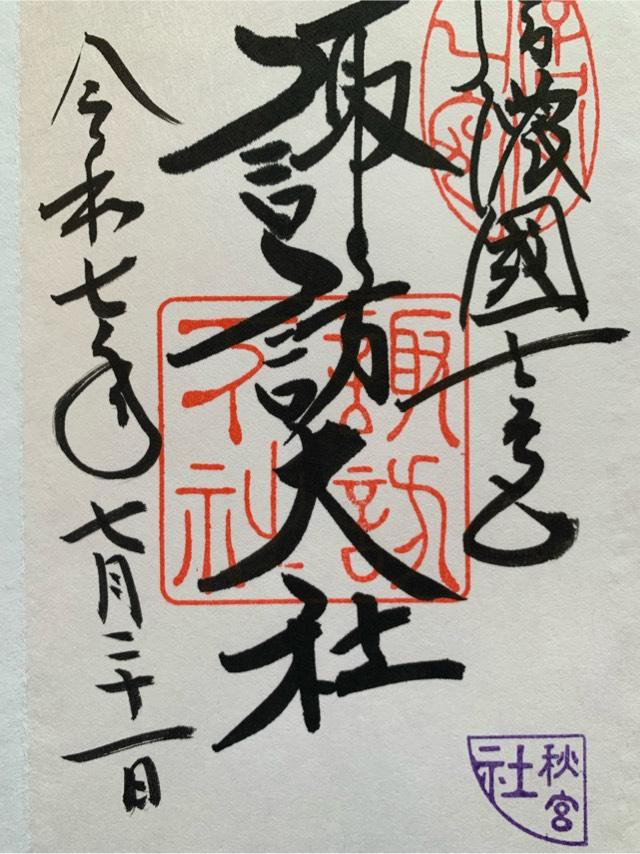 信濃國一之宮
諏訪大社
諏訪
大社
令和七年七月二十一日
秋宮
社